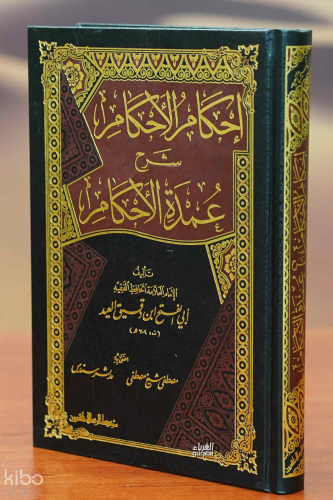 إحكام الأحكام
شرح
عمدة الأحكام
تأليف
الإمام العلامة الحافظ الفقيه
أبي الفتح ابن دقيق العيد
مصطفى شيخ مصطفى
مدثر سندس
مؤسسة الرسالة ناشرون
الغرباء
guraba
kibo